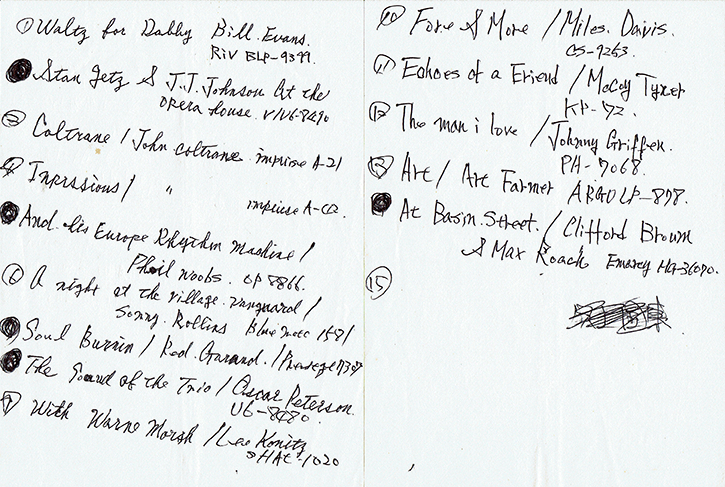 ① Waltz for Dabby Bill. Evans.
Riv BLP-9399
Stan Getz & J.J. Johnson At the
opera house. V/V6-8490
③ Coltrane / John coltrane. impulse A-21
④ Inprssions / 〃
impulse A-42.
And. His Europe Rhythm Machine /
Phil Woobs.
⑥ A night at the village. vanguard /
Sonny. Rollins Blue note 1581
Soul Burnin / Red. Garand. / Prestege 7307
The Sound of the Trio / Oscar Peterson.
V6-8480.
⑨ With Warne Marsh / Lee Konitz
SHAt-1020
⑩ Fore & More / Miles. Davis.
CS-9253.
⑪ Echoes of a Friend / McCoy Tyner
⑫ The man i love / Johnny Griffen.
PH-7068.
⑬ Art / Art Farmer ARGO LP-678.
At Basin. Street. / Clifford Brown
& Max Roach Emarcy
⑮